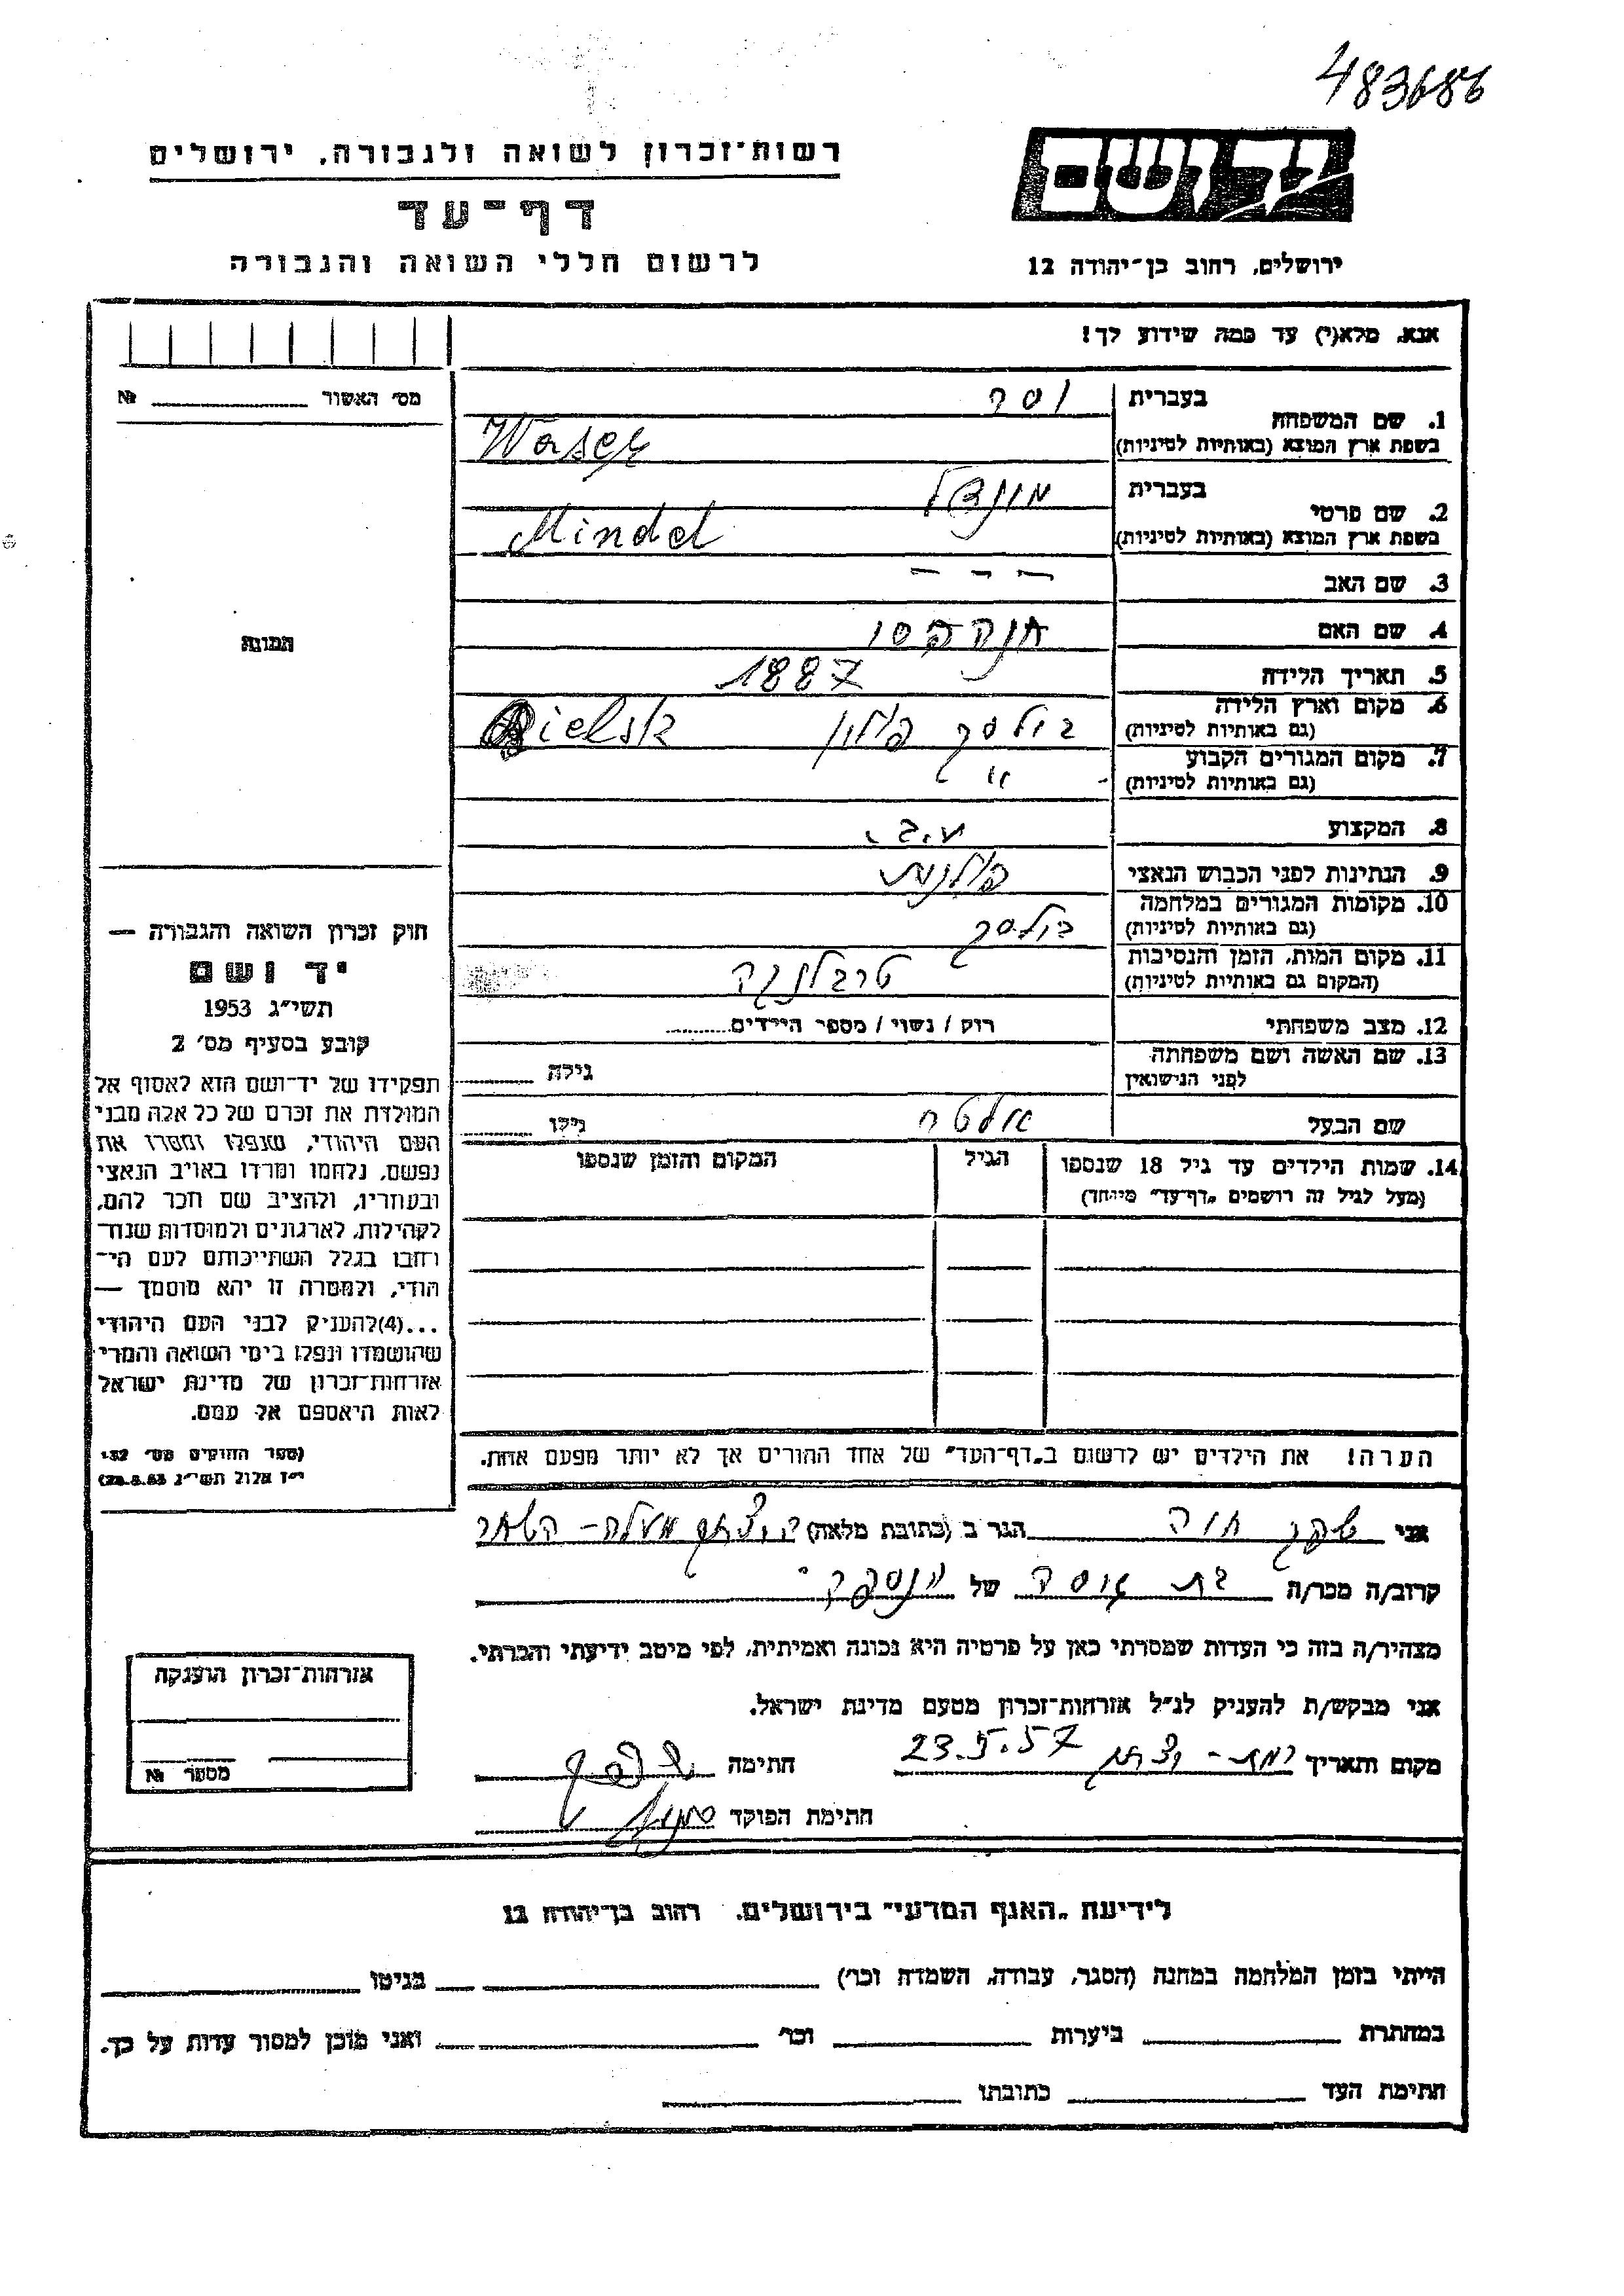 483686
רשות־זכרון לשואה ולגבורה, ירושלים
יד ושם
דף־עד
ירושלים, רחוב בן־יהודה 12
לרשום חללי השואה והגבורה
אנא, מלא(י) עד כמה שידוע לך!
מס׳ האשור № 
1. שם המשפחה בעברית וסר
בשפת ארץ המוצא (באותיות לטיניות) Waser
2. שם פרטי בעברית מינדל
בשפת ארץ המוצא (באותיות לטיניות) Mindel
3. שם האב – – –
4. שם האם
תמונה
5. תאריך הלידה 1887
6. מקום וארץ הלידה בילסק פולין Bielsk
(גם באותיות לטיניות)
7. מקום המגורים הקבוע — " —
(גם באותיות לטיניות)
8. המקצוע ע.ב.
9. הנתינות לפני הכבוש הנאצי פולנית
10. מקומות המגורים במלחמה בילסק
(גם באותיות לטיניות)
11. מקום המות, הזמן והנסיבות טרבלינקה
(המקום גם באותיות לטיניות)
12. מצב משפחתי רוק / נשוי / מספר הילדים
13. שם האשה ושם משפחתה גילה
לפני הנישואין
שם הבעל אלטר גילו
14. שמות הילדים עד גיל 18 שנספו הגיל המקום והזמן שנספו
(מעל לגיל זה רושמים „דף־עד״ מיוחד)
הערה! את הילדים יש לרשום ב„דף־העד״ של אחד ההורים אך לא יותר מפעם אחת.
חוק זכרון השואה והגבורה —
יד ושם
תשי״ג 1953
קובע בסעיף מס׳ 2
תפקידו של יד־ושם הוא לאסוף אל
המולדת את זכרם של כל אלה מבני
העם היהודי, שנפלו ומסרו את
נפשם, נלחמו ומרדו באויב הנאצי
ובעוזריו, ולהציב שם וזכר להם,
לקהילות, לארגונים ולמוסדות שנח־
רחבו בגלל השתייכותם לעם הי־
הודי, ולמטרה זו יהא מוסמך —
...(4)להעניק לבני העם היהודי
שהושמדו ונפלו בימי השואה והמרי
אזרחות־זכרון של מדינת ישראל
לאות היאספם אל עמם.
(ספר החוקים מס׳ 132
י״ז אלול תשי״ג 28.8.53)
אני חוה הגר ב (כתובת מלאה) קיבוץ מעלה־החמשה
קרוב/ה מכר/ה בת של הנספה
מצהיר/ה בזה כי העדות שמסרתי כאן על פרטיה היא נכונה ואמיתית, לפי מיטב ידיעתי והכרתי.
אני מבקש/ת להעניק לנ״ל אזרחות־זכרון מטעם מדינת ישראל.
אזרחות־זכרון הוענקה
מספר № 
מקום ותאריך 23.5.57 חתימה
חתימת הפוקד
לידיעת „האגף המדעי״ בירושלים, רחוב בן־יהודה 12
הייתי בזמן המלחמה במחנה (הסגר, עבודה, השמדה וכר׳) בגיטו
במחתרת ביערות וכר׳ ואני מוכן למסור עדות על כך.
חתימת העד כתובתו